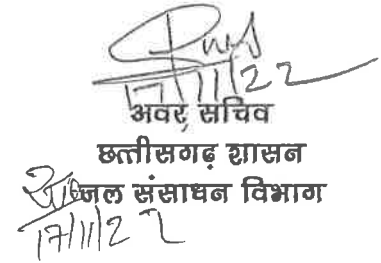 17/11/22
अवर सचिव
छत्तीसगढ़ शासन
जल संसाधन विभाग
17/11/22